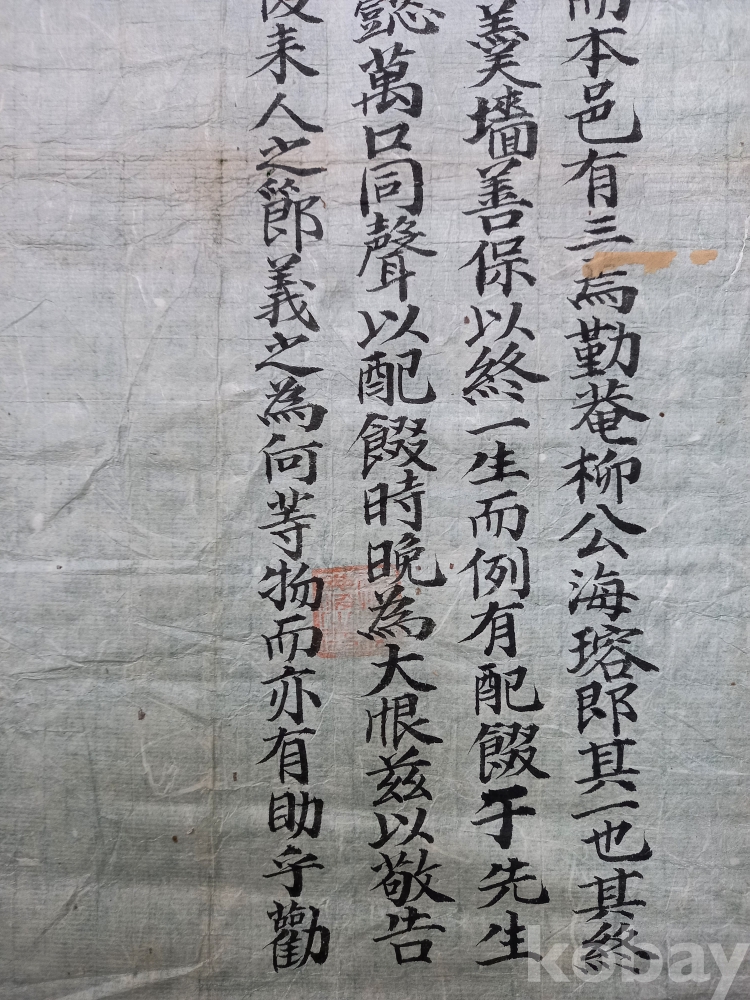 而本邑有三焉勤菴柳公海瑢即其一也其終
羹墻善保以終一生而例有配餟于先生
懿萬口同聲以配餟時晩為大恨玆以敬告
後来人之節義之為何等物而亦有助乎勸
kobay